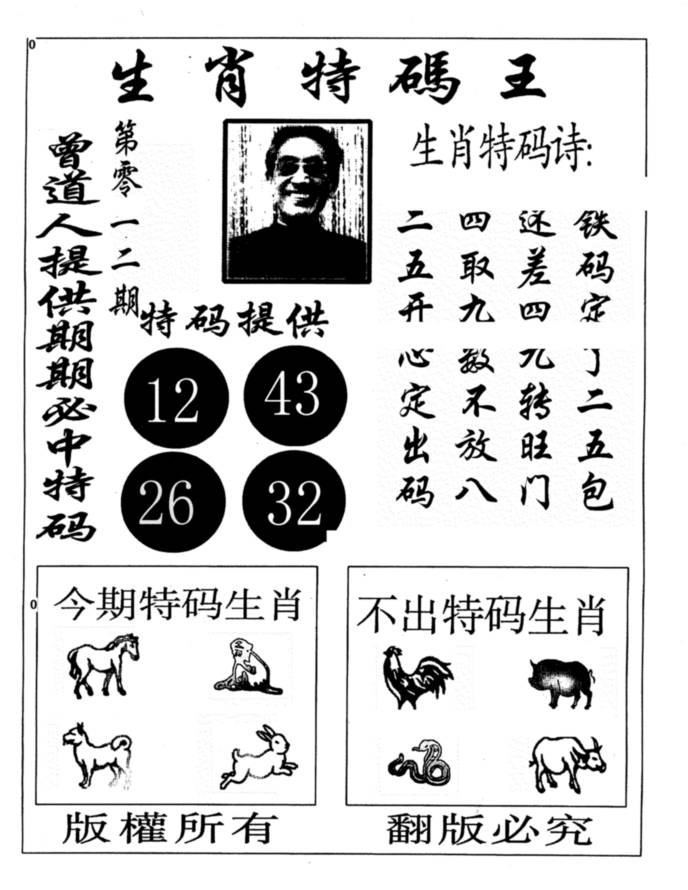 0
生肖特碼王
曾道人提供期期必中特码
第零一二期
特码提供
12 43
26 32
生肖特码诗:
二五开心定出码
四取九数不放八
还差四九转旺门
铁码定了二五包
0
今期特码生肖
不出特码生肖
版權所有
翻版必究